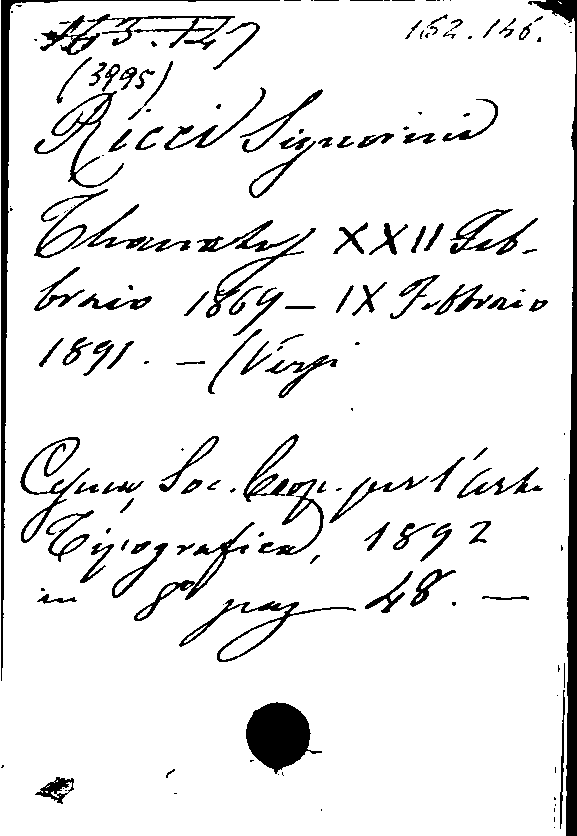 163.147
152.146.
(3995)
Ricci Signorini
Thanatos XXII Feb-
braio 1869 — IX Febbraio
1891. — (Versi
Soc. Coop. per l'arte
Tipografica, 1892
in 8º pag 48. —